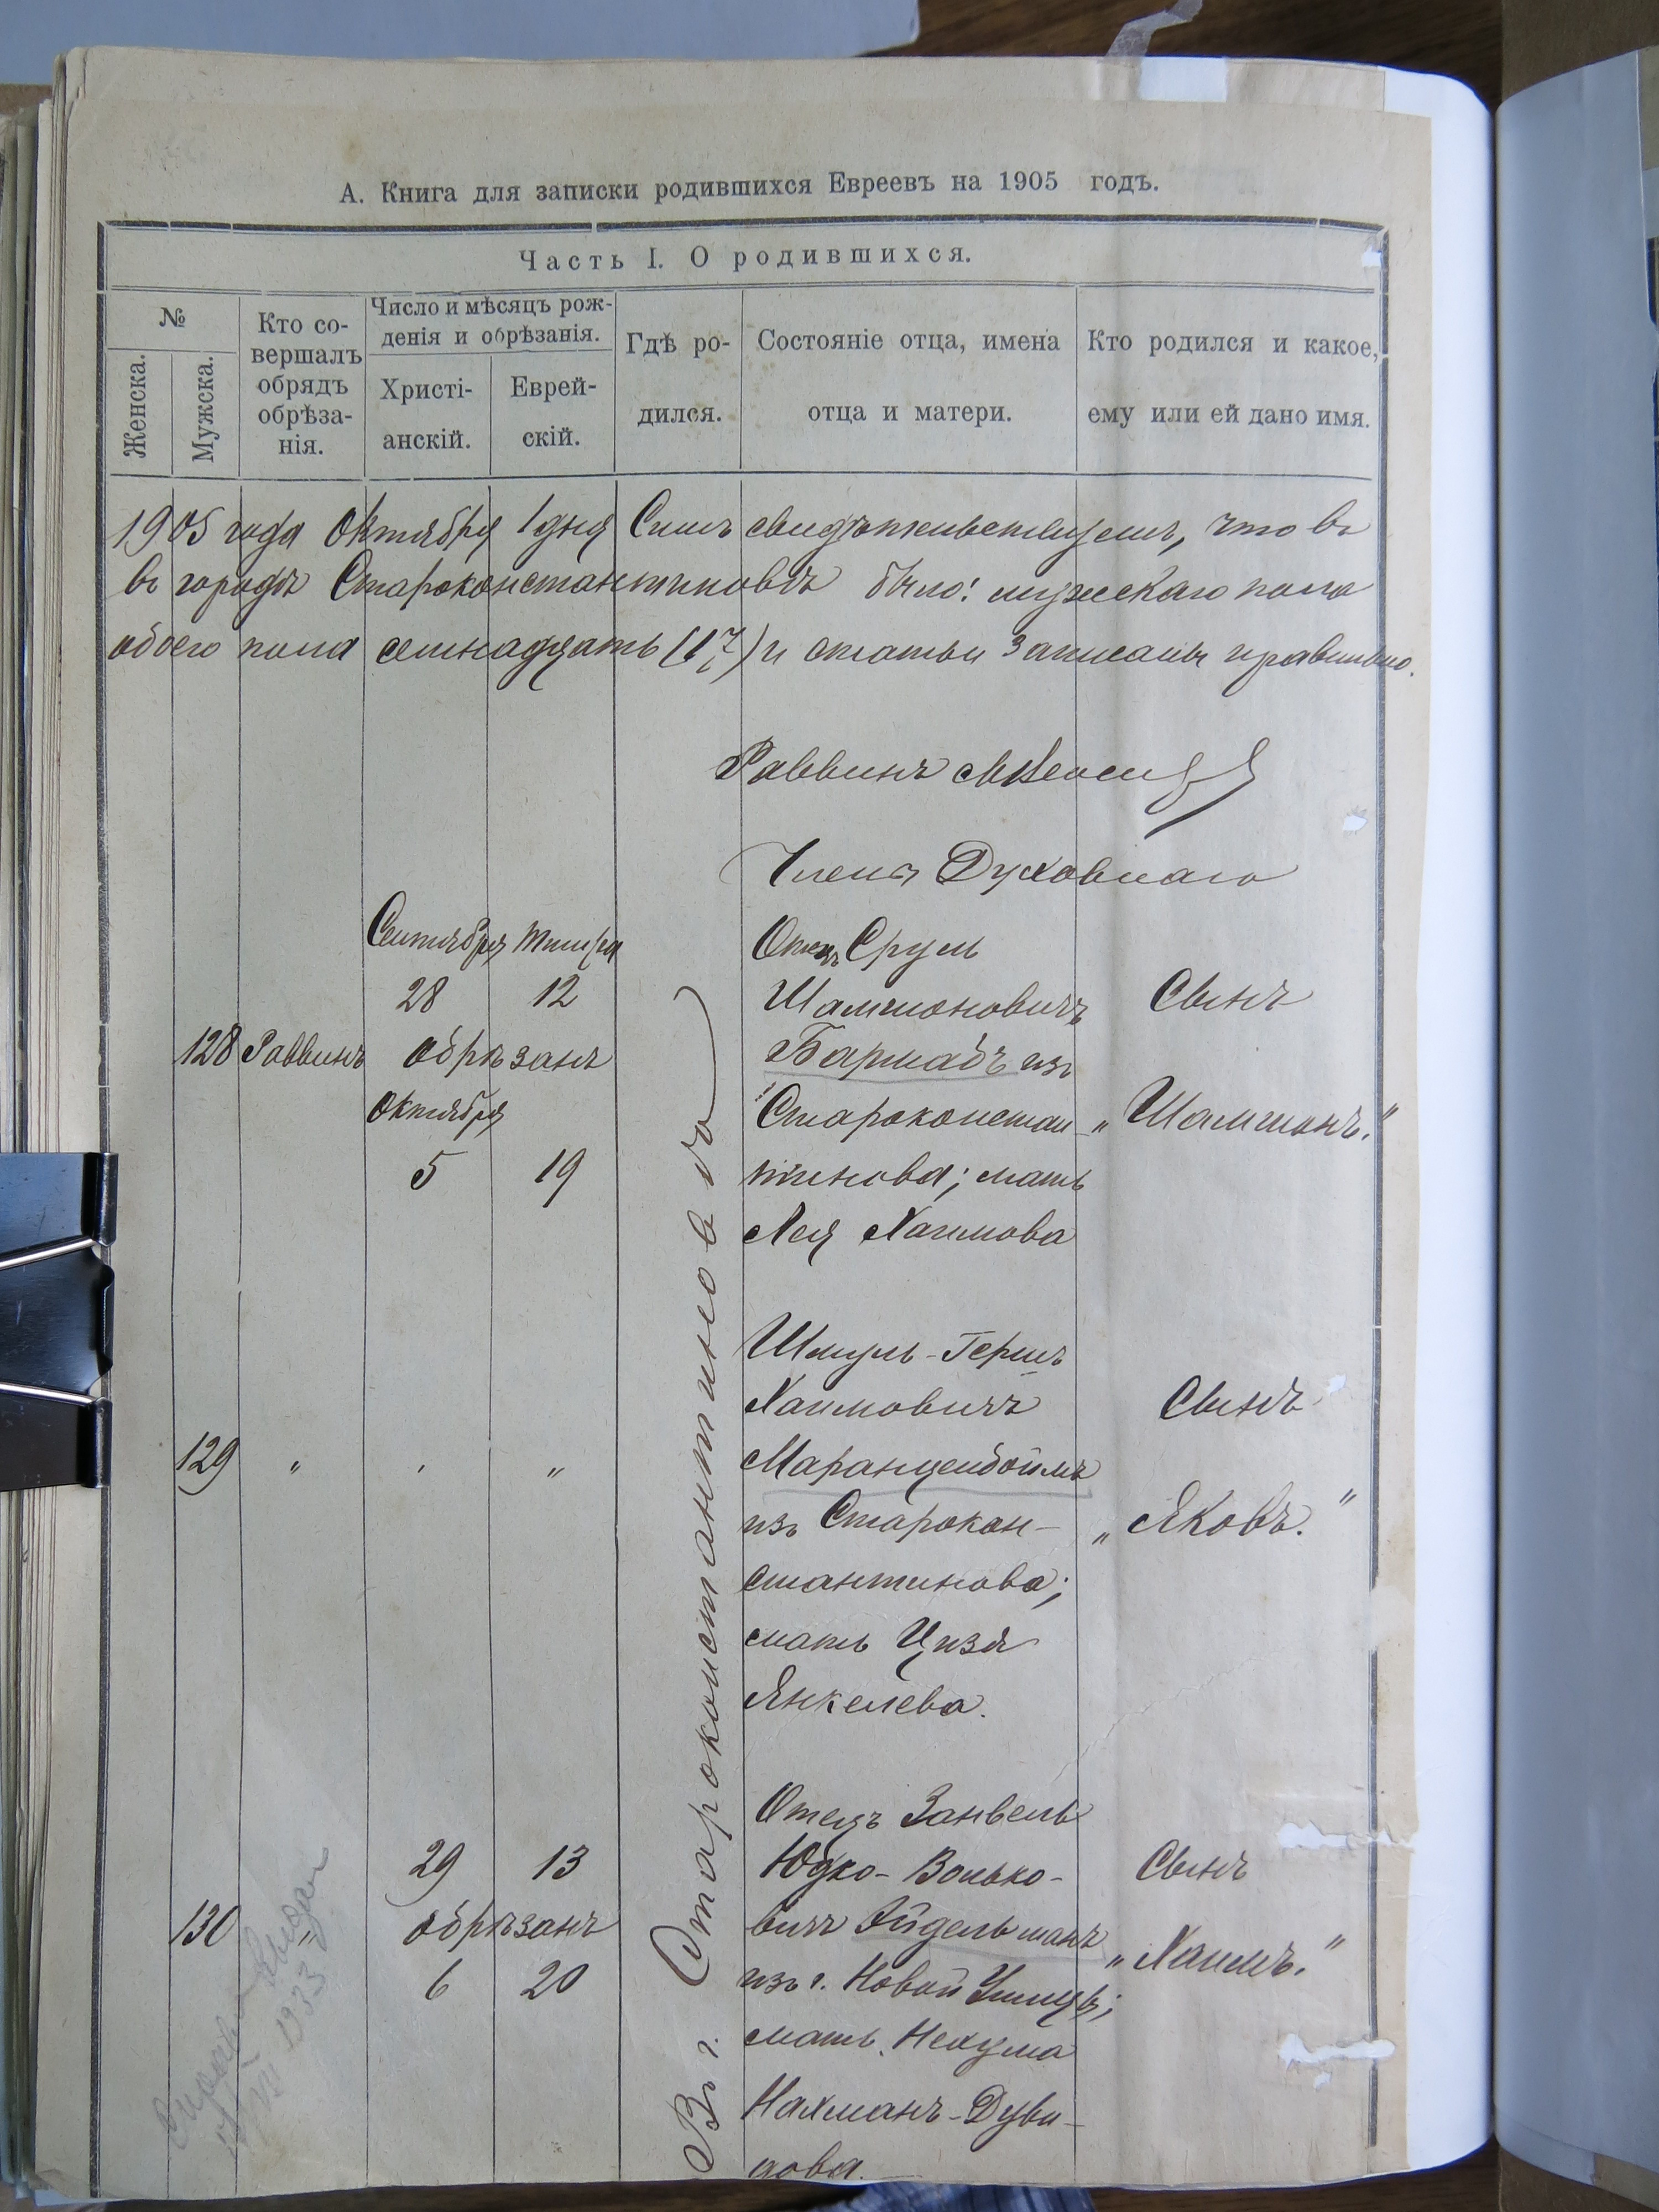 А. Книга для записки родившихся Евреевъ на 1905 годъ.
Часть I. О родившихся.
№
Женска.
Мужска.
Кто со-
вершалъ
обрядъ
обрѣза-
нія.
Число и мѣсяцъ рож-
денія и обрѣзанія.
Христі-
анскій.
Еврей-
скій.
Гдѣ ро-
дился.
Состояніе отца, имена
отца и матери.
Кто родился и какое,
ему или ей дано имя.
1905 года Октября 1 дня Симъ свидѣтельствуемъ, что въ
въ городѣ Староконстантиновѣ было: мужскаго пола
обоего пола семнадцать (17) и статьи записаны правильно.
Раввинъ
Члены Духовнаго
Сентября Тишри
28 12
128 Раввинъ обрѣзанъ
Октября
5 19
Отецъ Сруль
Шамшоновичъ
Бармадъ изъ
Староконстан-
тинова; мать
Лея Хаимова
Сынъ
„Шамшонъ.“
129 „ „ „
Шмуль-Гершъ
Хаимовичъ
Маранценбоймъ
изъ Старокон-
стантинова;
мать Цизя
Янкелева.
Сынъ
„Яковъ.“
29 13
130 „ обрѣзанъ
6 20
Отецъ Занвель
Юдко-Волько-
вичъ Айдельманъ
изъ г. Новой Ушицы;
мать Нехума
Нахманъ-Дуви-
дова.
Сынъ
„Хаимъ.“
Въ г. Староконстантиновѣ
1933